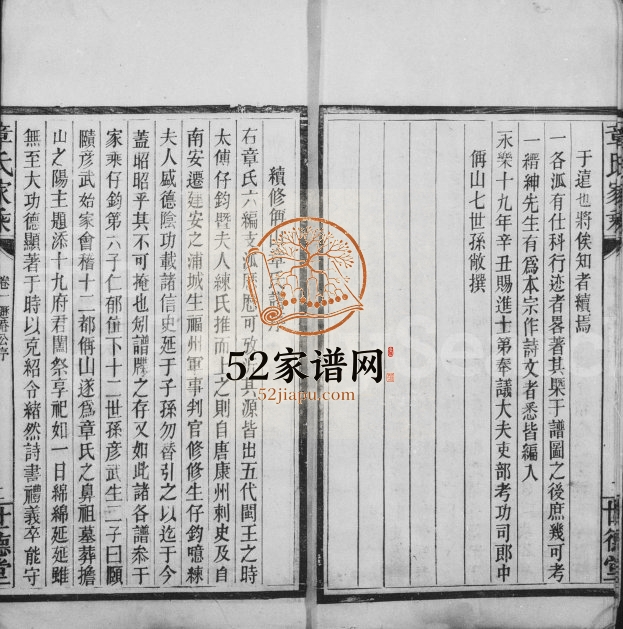 章氏家乘
世德堂
于這也將俟知者續焉
一各派有仕科行迹者畧著其槩于譜圖之後庶幾可考
一縉紳先生有爲本宗作詩文者悉皆編入
永樂十九年辛丑賜進士第奉議大夫吏部考功司郎中
偁山七世孫敞撰
續修偁山章氏譜序
右章氏六編支派歷歷可攷其源皆出五代閩王之時
太傅仔鈞暨夫人練氏推而上之則自唐康州刺史及自
南安遷建安之浦城生福州軍事判官修修生仔鈞噫練
夫人盛德陰功載諸信史延于子孫勿替引之以迄于今
蓋昭昭乎其不可掩也矧譜牒之存又如此諸各譜叅于
家乘仔鈞第六子仁郁僮下十二世孫彥武生二子曰願
賾彥武始家會稽十二都偁山遂爲章氏之鼻祖墓葬擔
山之陽主題添十九府君闔祭享祀如一日綿綿延延雖
無至大功德顯著于時以克紹令緒然詩書禮義卒能守
章氏家乘
卷一
世德堂
52家谱网
52jiapu.com